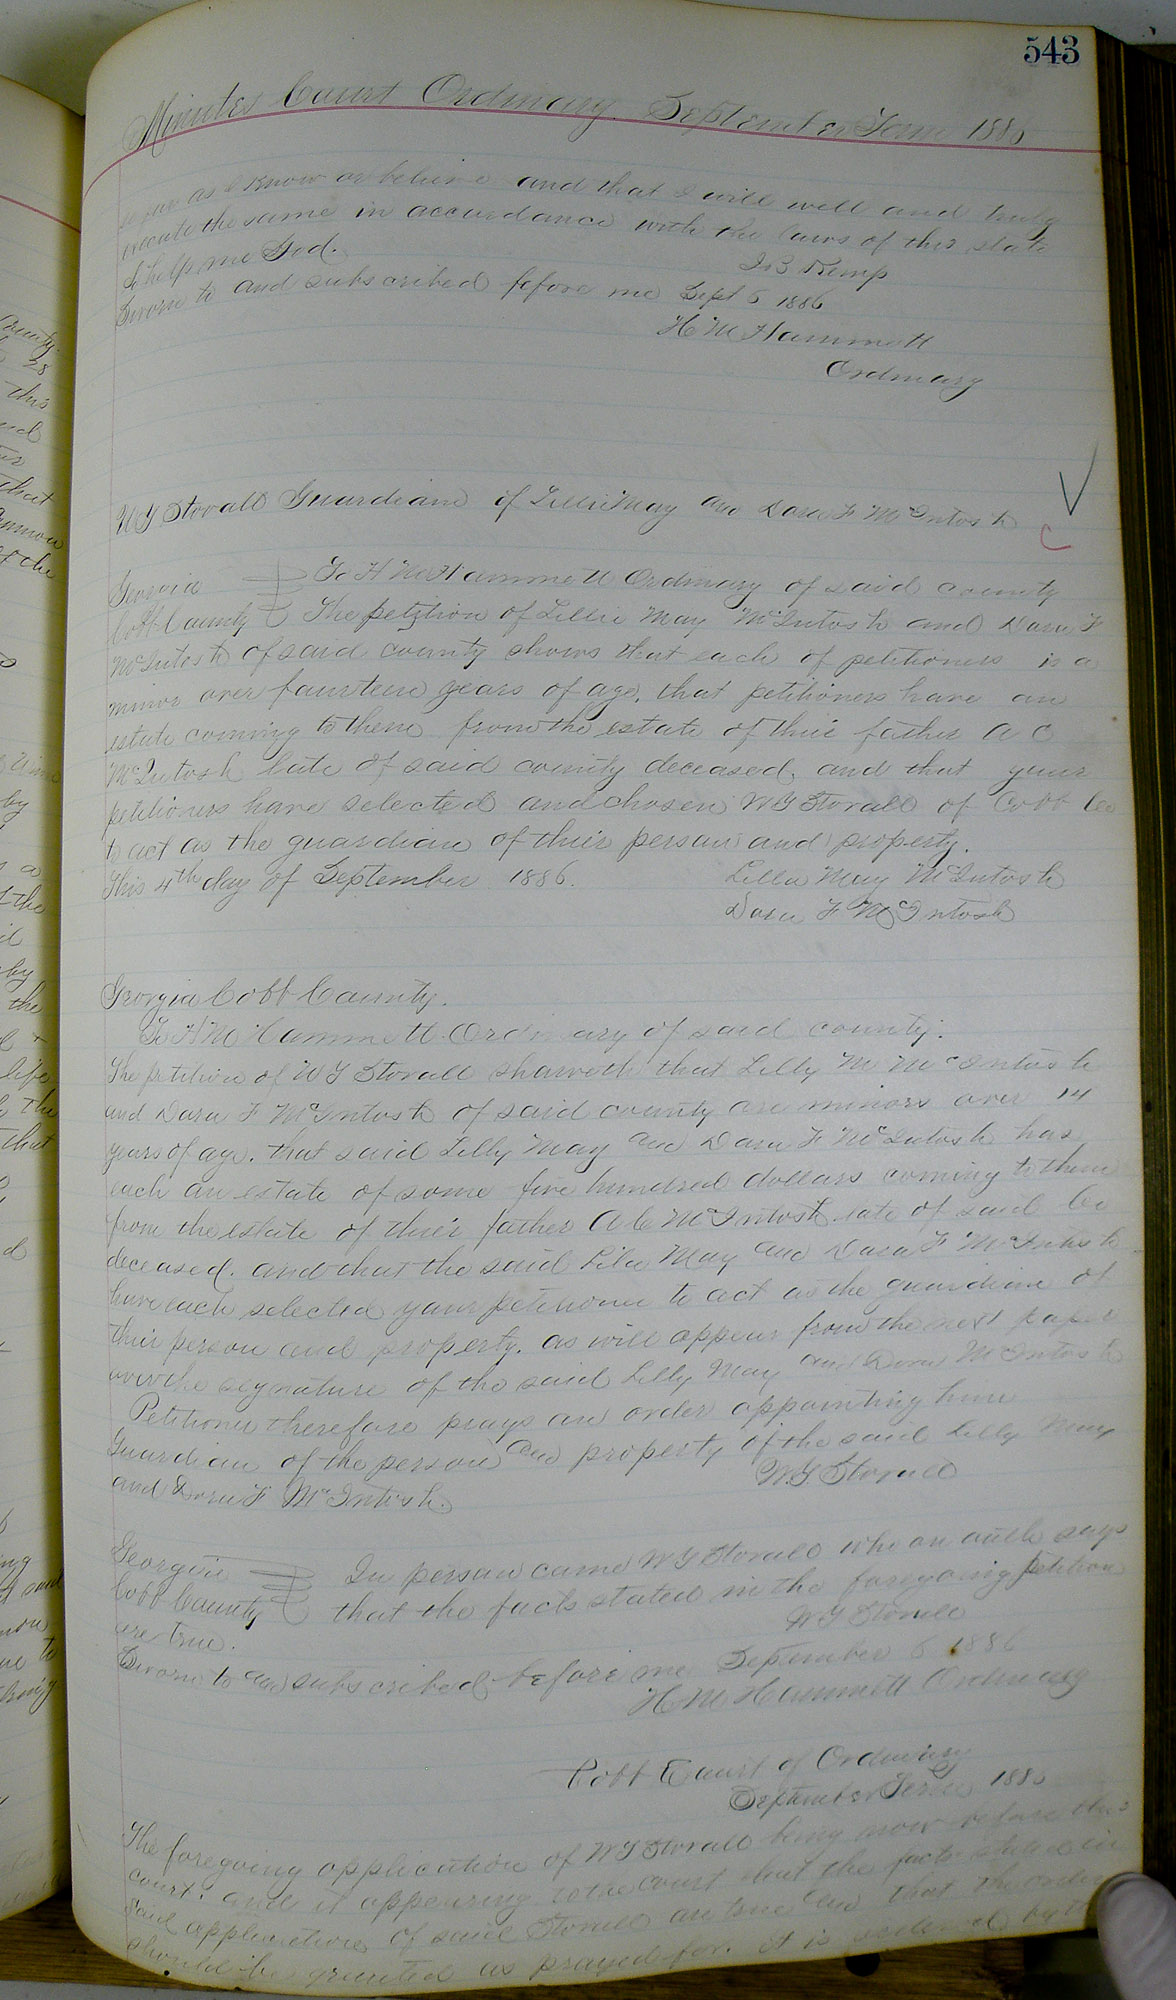 543
Minutes Court Ordinary. September Term 1886
so far as I know or believe and that I will well and truly
execute the same in accordance with the laws of this state
So help me God. J B Kemp
Sworn to and subscribed before me Sept 6 1886
H M Hammett
Ordinary
W G Stovall Guardian of Lillie May and Dora F McIntosh
Georgia To H M Hammett Ordinary of said county
Cobb County The petition of Lillie May McIntosh and Dora F
McIntosh of said county shows that each of petitioners is a
minor over fourteen years of age, that petitioners have an
estate coming to them from the estate of their father A C
McIntosh late of said county deceased, and that your
petitioners have selected and chosen W G Stovall of Cobb Co
to act as the guardian of their person and property.
This 4th day of September 1886. Lilla May McIntosh
Dora F McIntosh
Georgia Cobb County.
To H M Hammett Ordinary of said county.
The petition of W G Stovall showeth that Lilly M McIntosh
and Dora F McIntosh of said county are minors over 14
years of age. that said Lilly May and Dora F McIntosh has
each an estate of some five hundred dollars coming to them
from the estate of their father A C McIntosh late of said Co
deceased. and that the said Lila May and Dora F McIntosh
have each selected your petitioner to act as the guardian of
their person and property. as will appear from the next paper
over the signature of the said Lilly May and Dora McIntosh
Petitioner therefore prays an order appointing him
Guardian of the person and property of the said Lilly May
and Dora F McIntosh. W. G. Stovall
Georgia In person came W G Stovall who on oath says
Cobb County that the facts stated in the foregoing petition
are true. W G Stovall
Sworn to and subscribed before me September 6 1886
H M Hammett Ordinary
Cobb Court of Ordinary
September Term 1886
The foregoing application of W G Stovall being now before the
court. and it appearing to the court that the facts stated in
said application of said Stovall are true and that the order
should be granted as prayed for. it is ordered by the